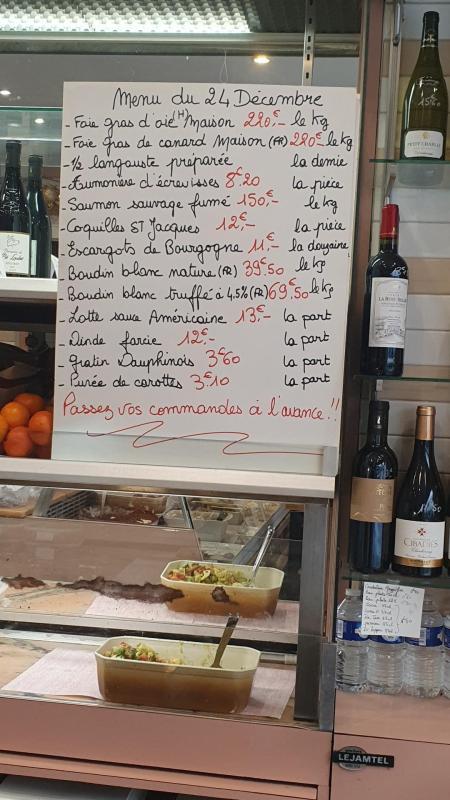 Menu du 24 Décembre
- Foie gras d'oie (H) Maison 220,- le kg
- Foie gras de canard Maison (FR) 220- le kg
- ½ langouste préparée la demie
- Aumonière d'écrevisses 8€20 la pièce
- Saumon sauvage fumé 150,- le kg
- Coquilles ST Jacques 12€,- la pièce
- Escargots de Bourgogne 11€,- la douzaine
- Boudin blanc nature (FR) 39€50 le kg
- Boudin blanc truffé à 4,5% (FR) 69€50 le kg
- Lotte sauce Américaine 13€,- la part
- Dinde farcie 12€,- la part
- Gratin Dauphinois 3€60 la part
- Purée de carottes 3€10 la part
Passez vos commandes à l'avance !!
PETIT CHABLIS
CIBADIÈS
Chardonnay
LEJAMTEL